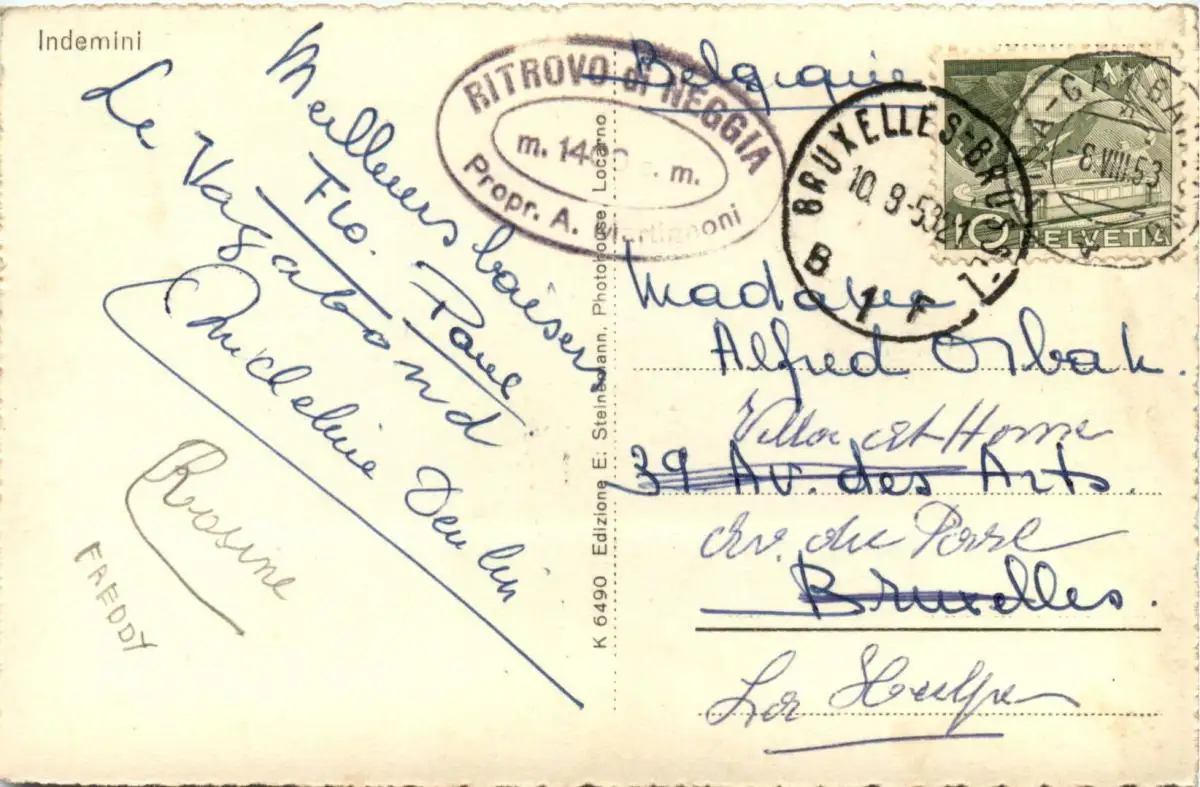 Indemini
Meilleurs baisers
Flo. Paul
Le Vagabond
Micheline
Rosine
FREDDY
K 6490 Edizione E. Steinemann, Photohouse Locarno
RITROVO di NEGGIA
m. 14 s. m.
Propr. A. Martignoni
Belgique
BRUXELLES-BRUSSEL
10. 8-53 21
B 1 F
8.VIII.53
10 HELVETIA
Madame
Alfred Orbak.
Villa at Home
39 Av. des Arts.
Av. du Parc
Bruxelles.
La Hulpe